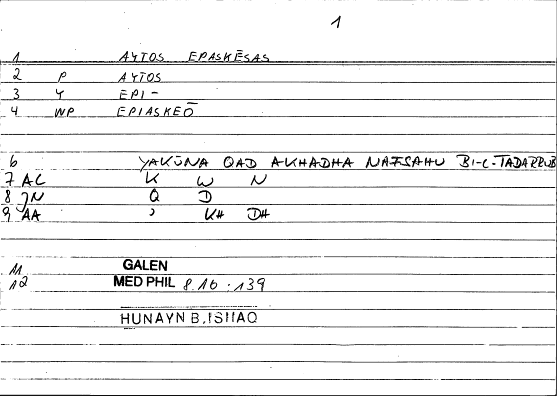 1
1 AYTOS EPASKĒSAS
2 P AYTOS
3 Y EPI-
4 WP EPIASKEŌ
6 YAKŪNA QAD AKHADHA NAFSAHU BI-L-TADARRUB
7 AC K W N
8 JN Q D
9 AA ʾ KH DH
11 GALEN
12 MED PHIL 8.16.139
HUNAYN B.ISHAQ